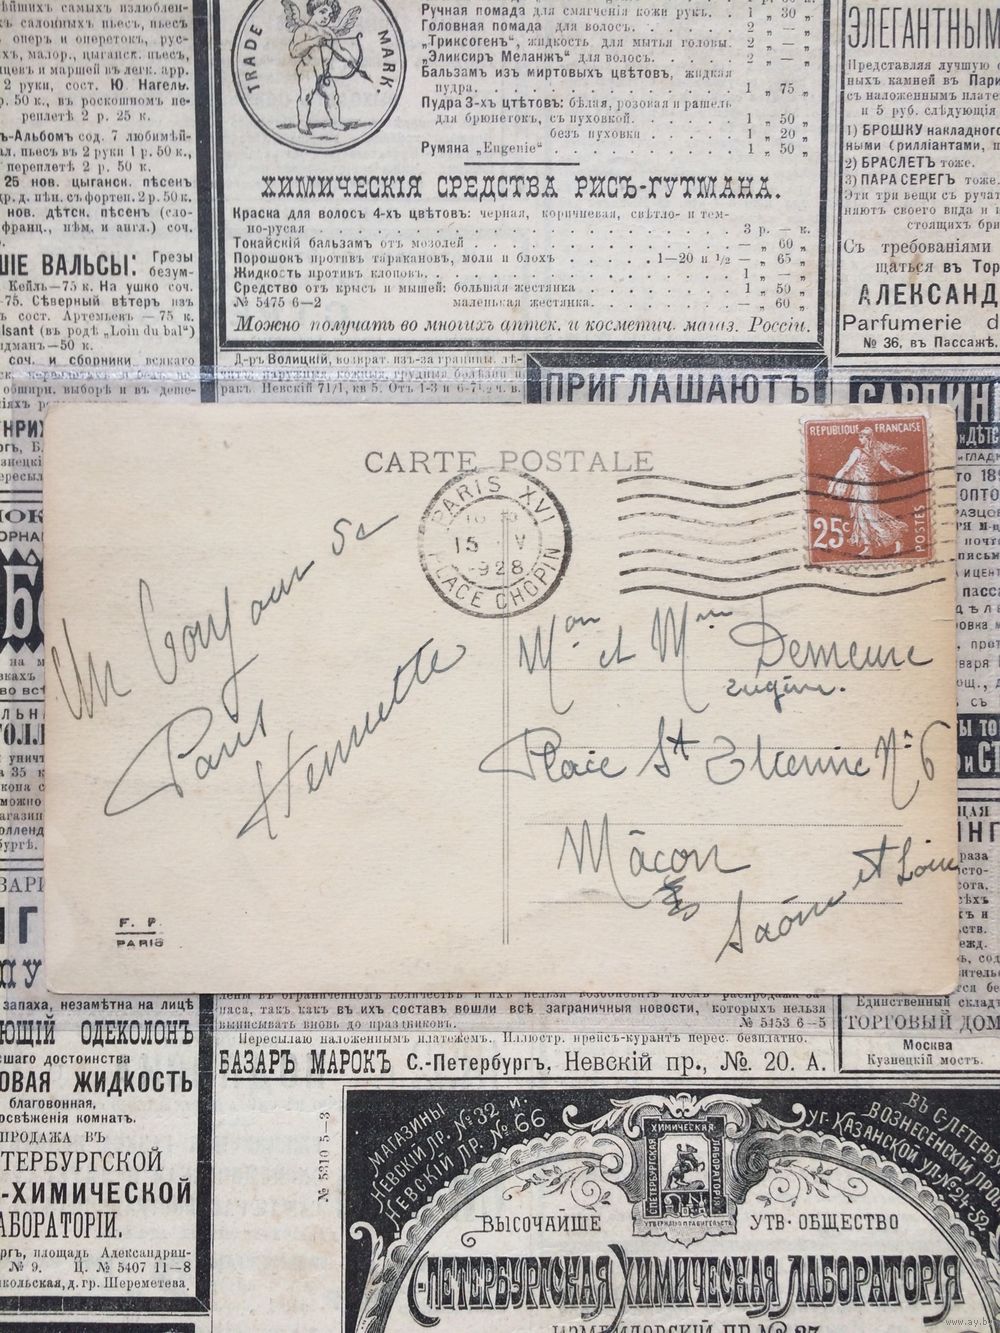 TRADE MARK.
Ручная помада для смягченія кожи рукъ. . 1 „ 30 „
Головная помада для волосъ. . . . . . 2 „ — „
„Триксогенъ“, жидкость для мытья головы. 2 „ — „
„Эликсиръ Меланжъ“ для волосъ. . . . . 2 „ — „
Бальзамъ изъ миртовыхъ цвѣтовъ, жидкая
пудра. . . . . . . . . . . . 1 „ 75 „
Пудра 3-хъ цтѣтовъ: бѣлая, розовая и рашель
для брюнетокъ, съ пуховкой. . . . . 1 „ 50 „
безъ пуховки . . . . 1 „ 20 „
Румяна „Eugenie“ . . . . . . . . 1 „ 50 „
ХИМИЧЕСКІЯ СРЕДСТВА РИСЪ-ГУТМАНА.
Краска для волосъ 4-хъ цвѣтовъ: черная, коричневая, свѣтло- и тем-
но-русая . . . . . . . . . . 3 р. — к.
Токайскій бальзамъ отъ мозолей . . . . . . — „ 60 „
Порошокъ противъ таракановъ, моли и блохъ . . . . 1—20 и ½ — „ 65 „
Жидкость противъ клоповъ. . . . . . . 1 „ — „
Средство отъ крысъ и мышей: большая жестянка . . . . 1 „ 50 „
№ 5475 6—2 маленькая жестянка. . . . . — „ 60 „
Можно получать во многихъ аптек. и косметич. магаз. Россіи.
2 руки, сост. Ю. Нагель.
переплетѣ 2 р. 25 к.
25 нов. цыганск. пѣсенъ
ШІЕ ВАЛЬСЫ: Грезы
безум-
75. Сѣверный вѣтеръ изъ
сост. Артемьевъ — 75 к.
(въ родѣ „Loin du bal“)
соч. и сборники всякаго
ЭЛЕГАНТНЫМ
Представляя лучшую
ныхъ камней въ Пари
съ наложеннымъ плате
и 5 руб. слѣдующія
1) БРОШКУ накладного
ными (рилліантами,
2) БРАСЛЕТЪ тоже.
3) ПАРА СЕРЕГЪ тоже.
Эти три вещи съ ручат
няютъ своего вида и
стоящихъ бри
Съ требованіями
щаться въ Тор
АЛЕКСАНД
Parfumerie d
№ 36, въ Пассажѣ.
Д-ръ Волицкій, возврат. изъ-за границы, лѣ-
читъ наружныя, кожныя, грудныя болѣзни и
ракъ. Невскій 71/1, кв 5. Отъ 1-3 и 6-7½ ч. в.
ПРИГЛАШАЮТЪ
САРПИН
CARTE POSTALE
REPUBLIQUE FRANÇAISE
25c
POSTES
PARIS XVI
15 V
1928
PLACE CHOPIN
Un bonjour de
Paris
Henriette
Mon et Mme Demeure
Eugène.
Place St Etienne No 6
Mâcon
Saône et Loire
F. F.
PARIS
лены въ ограниченномъ количествѣ и ихъ нельзя возобновить послѣ распродажи за-
паса, такъ какъ въ ихъ составъ вошли всѣ заграничныя новости, которыхъ нельзя
выписывать вновь до праздниковъ. № 5153 6—5
Пересылаю наложеннымъ платежемъ. Иллюстр. прейсъ-курантъ перес. безплатно.
БАЗАРЪ МАРОКЪ С.-Петербургъ, Невскій пр., №. 20. А.
Единственный складъ
ТОРГОВЫЙ ДОМ
Москва
Кузнецкій мостъ.
запаха, незамѣтна на лицѣ
ЮЩІЙ ОДЕКОЛОНЪ
сшаго достоинства
ОВАЯ ЖИДКОСТЬ
благовонная,
освѣженія комнатъ.
ПРОДАЖА ВЪ
ТЕРБУРГСКОЙ
-ХИМИЧЕСКОЙ
АБОРАТОРІИ.
площадь Александрин-
№ 9. Ц. № 5407 11—8
кольская, д. гр. Шереметева.
№ 5310 5—3
МАГАЗИНЫ
НЕВСКІЙ ПР. №. 32 и.
НЕВСКІЙ ПР. №. 66
ВЪ С-ПЕТЕРБУР
ВОЗНЕСЕНСКІЙ ПРОС
УГ. КАЗАНСКОЙ УЛ. № 24-52
ХИМИЧЕСКАЯ
С.ПЕТЕРБУРГСКАЯ
ЛАБОРАТОРІЯ
ВЫСОЧАЙШЕ УТВ. ОБЩЕСТВО
С-ПЕТЕРБУРГСКАЯ ХИМИЧЕСКАЯ ЛАБОРАТОРІЯ
ИЗМАЙЛОВСКІЙ ПР. № 27
www.ay.by